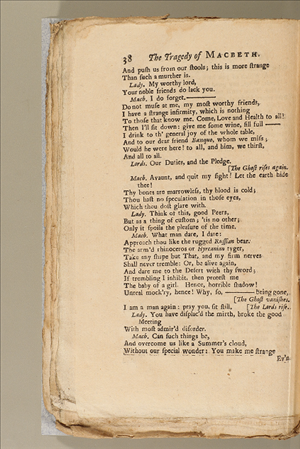 38 The Tragedy of MACBETH.
And push us from our stools; this is more strange
Than such a murther is.
Lady. My worthy lord,
Your noble friends do lack you.
Mach. I do forget.
Do not muse at me, my most worthy friends,
I have a strange infirmity, which is nothing
To those that know me. Come, Love and Health to all!
Then I'll sit down: give me some wine, fill full
I drink to th' general joy of the whole table,
And to our dear friend Banquo, whom we miss;
Would he were here! to all, and him, we thirst,
And all to all.
Lords. Our Duties, and the Pledge.
[The Ghost rises again.
Macb. Avaunt, and quit my sight! Let the earth hide
thee!
Thy bones are marrowless, thy blood is cold;
Thou hast no speculation in those eyes,
Which thou dost glare with.
Lady. Think of this, good Peers,
But as a thing of custom; 'tis no other;
Only it spoils the pleasure of the time.
Macb. What man dare, I dare:
Approach thou like the rugged Russian bear,
The arm'd rhinoceros or Hyrcanian tyger,
Take any shape but That, and my firm nerves
Shall never tremble: Or, be alive again,
And dare me to the Desert with thy sword;
If trembling I inhibit, then protest me
The baby of a girl. Hence, horrible shadow!
Unreal mock'ry, hence! Why, so. —— being gone,
[The Ghost vanishes.
I am a man again: pray you, sit still. [The Lords rise.
Lady. You have displac'd the mirth, broke the good
Meeting
With most admir'd disorder.
Macb. Can such things be,
And overcome us like a Summer's cloud,
Without our special wonder? You make me strange
Ev'n